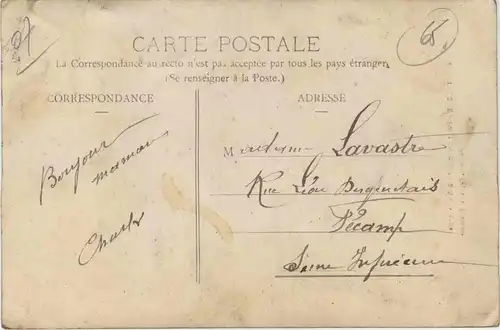 CARTE POSTALE
La Correspondance au recto n'est pas acceptée par tous les pays étrangers
(Se renseigner à la Poste.)
CORRESPONDANCE
ADRESSE
Bonjour
maman
Charles
Madame Lavastre
Rue Léon
Fécamp
Seine Inférieure
65